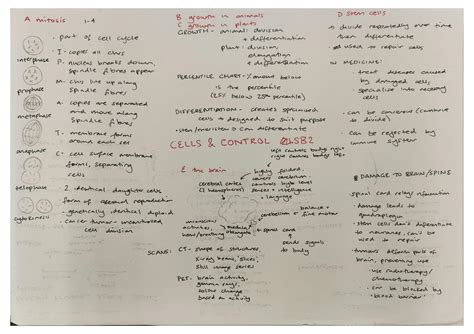 A mitosis 1-4
• part of cell cycle
• I - copies all chrs
P - nucleus breaks down,
spindle fibres appear
M - chrs line up along
spindle fibres
A - copies are separated
and move along
spindle fibres
T - membrane forms
around each set
C - cell surface membrane
forms, separating
cells
• 2 identical daughter cells
• form of asexual reproduction
- genetically identical diploid
• cancer tumour - uncontrolled
cell division
interphase
prophase
metaphase
anaphase
telophase
cytokinesis
B growth in animals
C growth in plants
GROWTH - animal: division
+ differentiation
plant: division,
elongation
+ differentiation
PERCENTILE CHART - % amount below
is the percentile
(25% below 25th percentile)
DIFFERENTIATION - creates specialised
cells + designed to suit purpose
• stem/meristem can differentiate
CELLS & CONTROL SB2
left controls body right
right controls body left
E the brain
cerebral cortex
(2 hemispheres)
highly folded,
covers cerebrum
controls high level
senses + intelligence
language
balance +
cerebellum = fine motor
unconscious
activities
heart/breathing
medulla
oblongata
spinal cord
sends signals
to body
SCANS: CT - shape of structures,
x-ray beams, 'slices',
still image series
PET - brain activity,
gamma rays,
colour change
based on activity
D stem cells
→ divide repeatedly over time
then differentiate
→ used to repair cells
IN MEDICINE:
- treat diseases caused
by damaged cells,
specialise into necessary
cells
- can be cancerous (continue
to divide)
- can be rejected by
immune system
F DAMAGE TO BRAIN/SPINE
spinal cord relays information
• damage leads to
quadraplegia
• stem cells don't differentiate
to neurones, can't be
used to repair
• tumours deform part of
brain, preventing use
- use radiotherapy/
chemotherapy
- can be blocked by
'blood barrier'